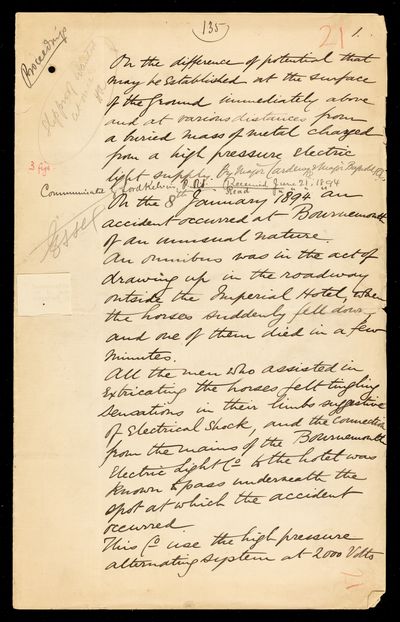 (135)
21
1.
Proceedings
On the difference of potential that
may be Established at the surface
of the Ground immediately above
and at various distances from
a buried mass of metal charged
from a high pressure Electric
light supply. By Major Cardew,
3 figs
Communicated by Lord Kelvin, P.R.S. Received June 21, 1894
Read
On the 8th January 1894 an
accident occurred at Bournemouth
of an unusual nature.
An omnibus was in the act of
drawing up in the roadway
outside the Imperial Hotel, when
the horses suddenly fell down
and one of them died in a few
minutes.
All the men who assisted in
Extricating the horses felt tingling
sensations in their limbs suggestive
of Electrical Shock, and the Connection
from the mains of the Bournemouth
Electric Light Co to the hotel was
known to pass underneath the
spot at which the accident
occurred.
This Co use the high pressure
alternating system at 2000 Volts